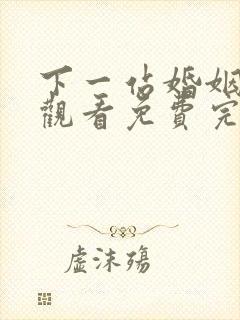 下一佔婚姻
觀看免費完
虛沫殤